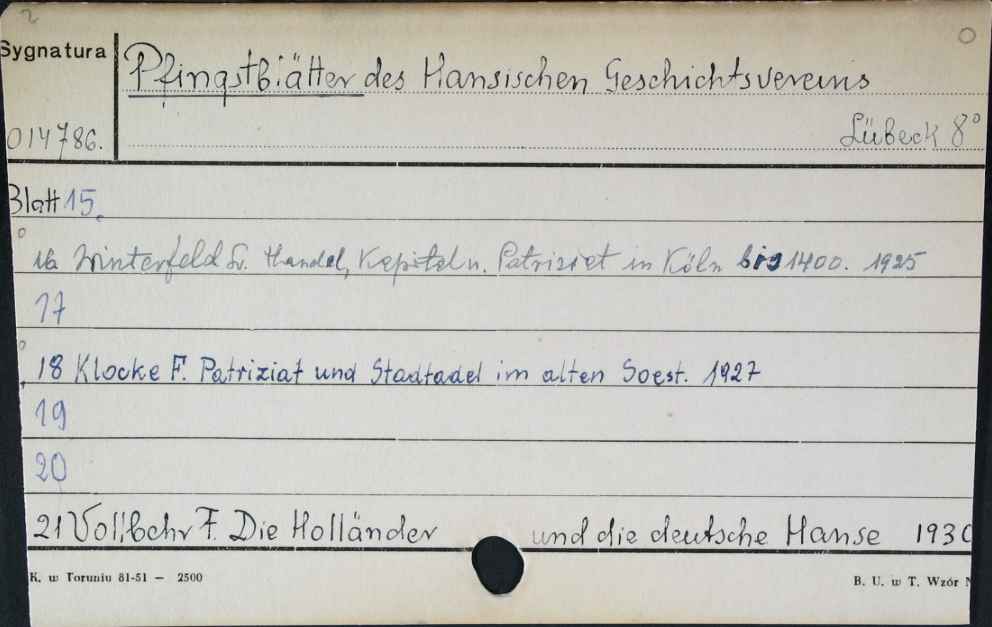 2
Sygnatura
Pfingstblätter des Hansischen Geschichtsvereins
014786.
Lübeck 8°
Blatt 15.
16 Winterfeld Lv. Handel, Kapital u. Patriziat in Köln bis 1400. 1925
17
18 Klocke F. Patriziat und Stadtadel im alten Soest. 1927
19
20
21 Vollbehr F. Die Holländer und die deutsche Hanse 1930
K. w Toruniu 81-51 — 2500
B. U. w T. Wzór N